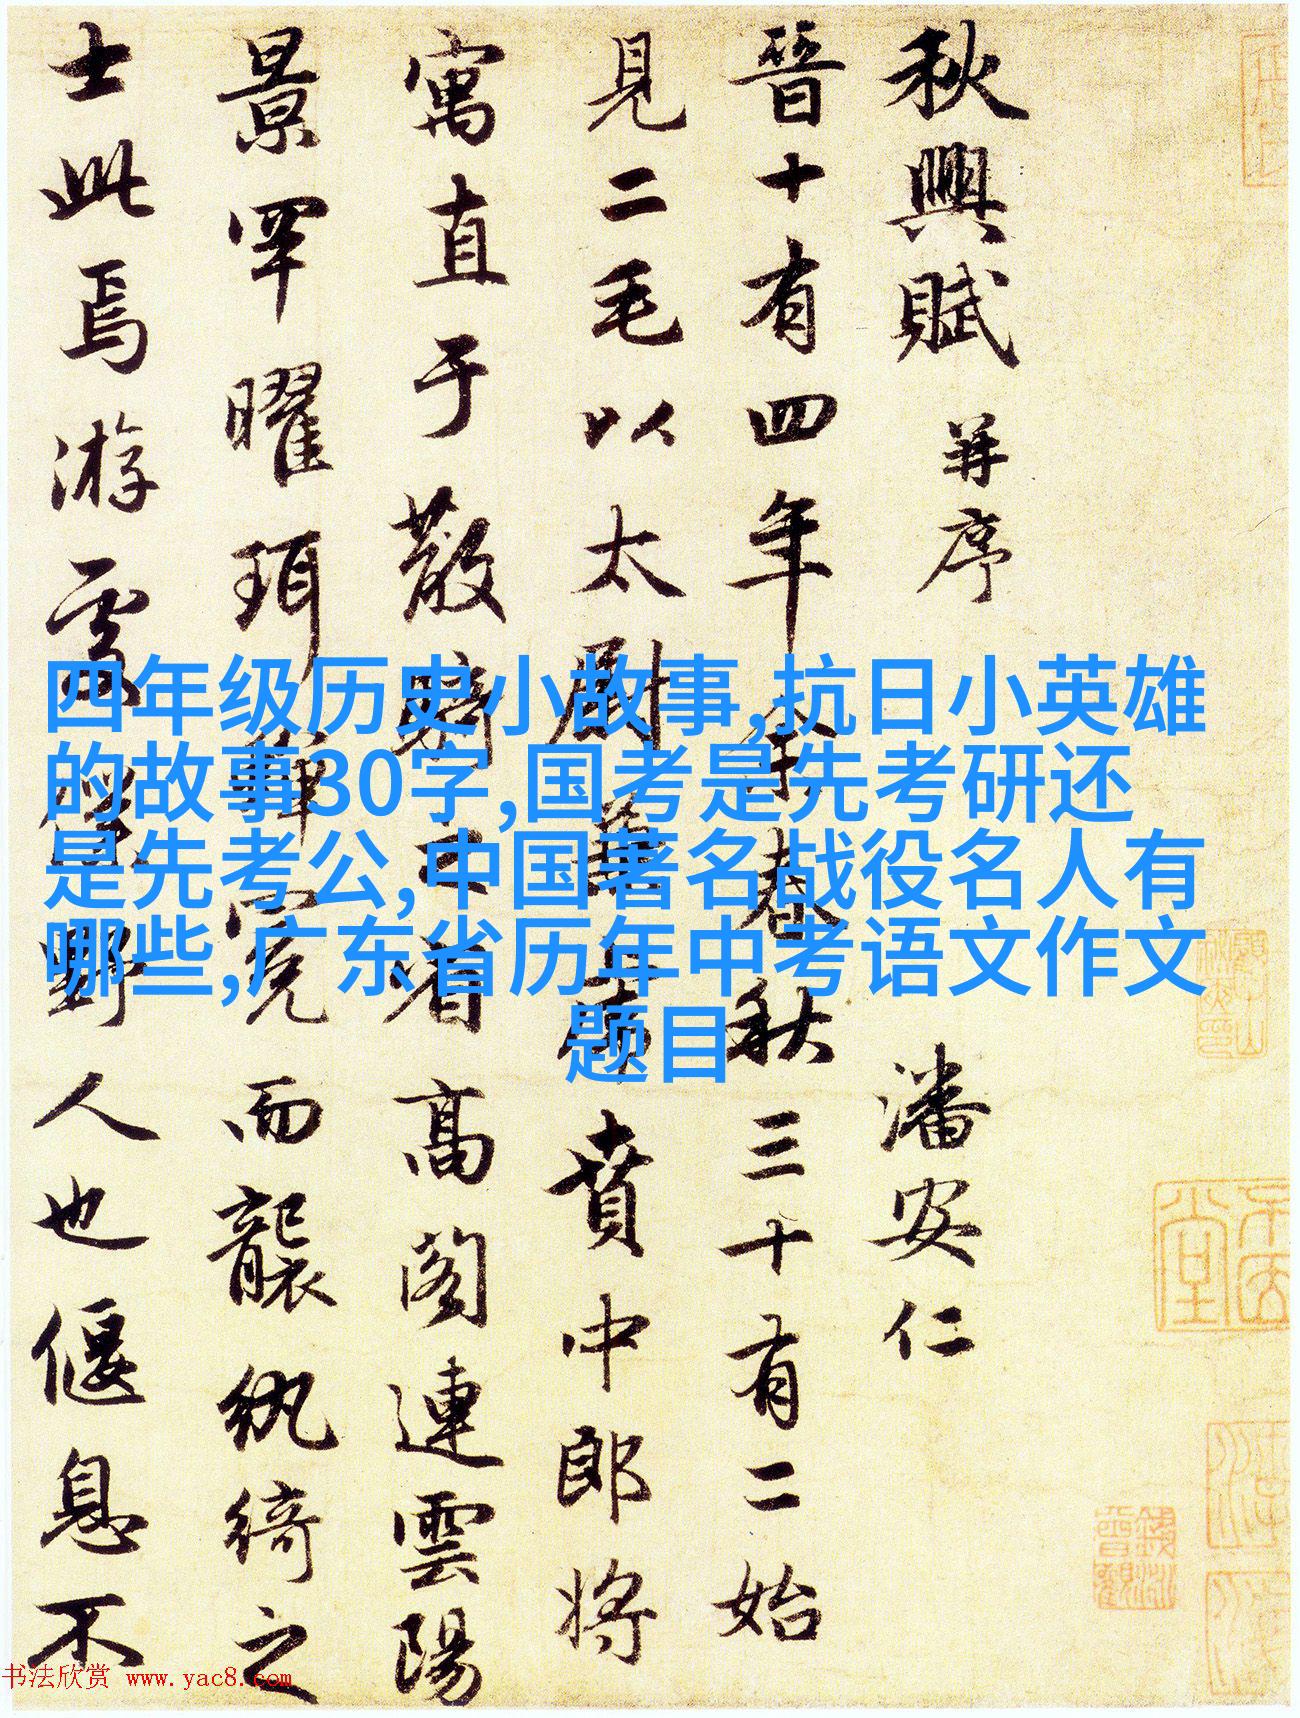 秋興賦 并序 潘安仁
晉十有四年余春秋三十有二始
見二毛以太尉兼虎賁中郎将
寓直于散騎之省高閣連雲陽
景罕曜珥蟬冕而襲紈綺之
士此焉游處僕野人也偃息不
四年级历史小故事,抗日小英雄
的故事30字,国考是先考研还
是先考公,中国著名战役名人有
哪些,广东省历年中考语文作文
题目
书法欣赏 www.yac8.com